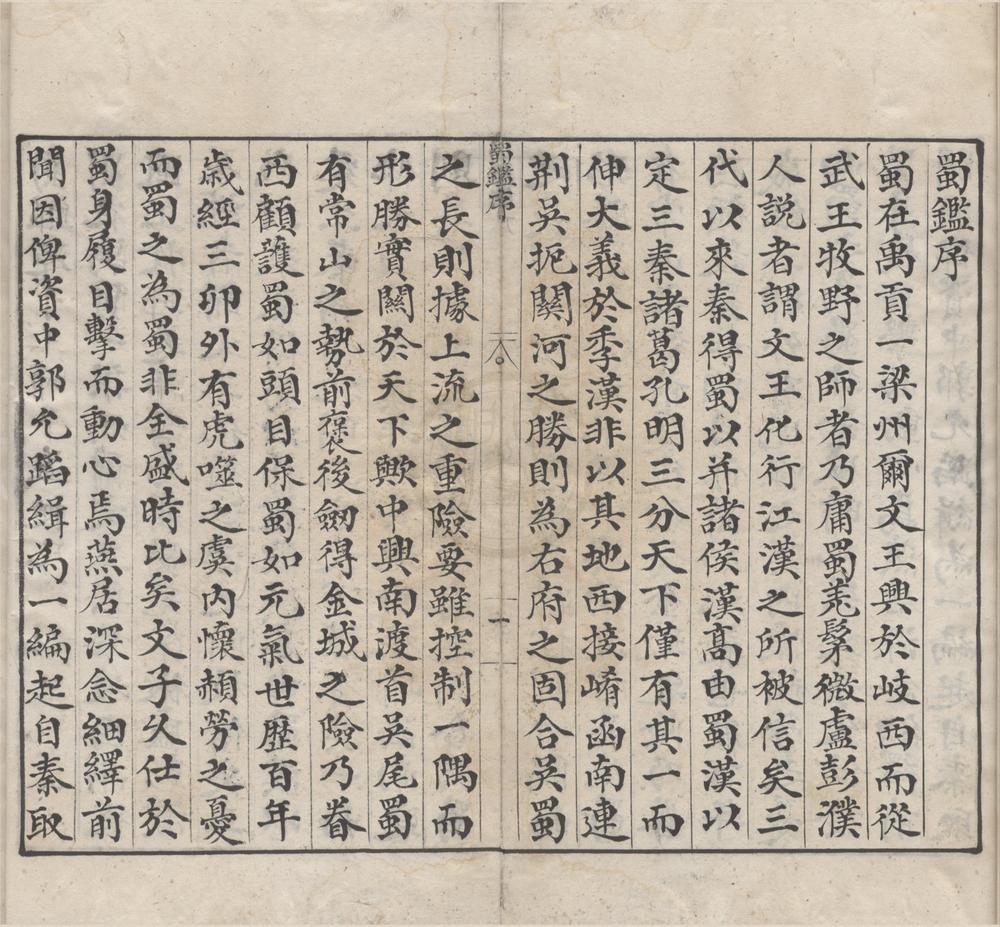 蜀鑑序
蜀在禹貢一梁州爾文王興於岐西而從
武王牧野之師者乃庸蜀羌髳微盧彭濮
人説者謂文王化行江漢之所被信矣三
代以來秦得蜀以并諸侯漢髙由蜀漢以
定三秦諸葛孔明三分天下僅有其一而
伸大義於季漢非以其地西接崤函南連
荆吳扼關河之勝則為右府之固合吳蜀
蜀鑑序
一
之長則據上流之重險要雖控制一隅而
形勝實關於天下歟中興南渡首吳尾蜀
有常山之勢前襃後劒得金城之險乃眷
西顧護蜀如頭目保蜀如元氣世歷百年
歲經三卯外有虎噬之虞内懷赬勞之憂
而蜀之為蜀非全盛時比矣文子久仕於
蜀身履目擊而動心焉燕居深念紬繹前
聞因俾資中郭允蹈緝為一編起自秦取